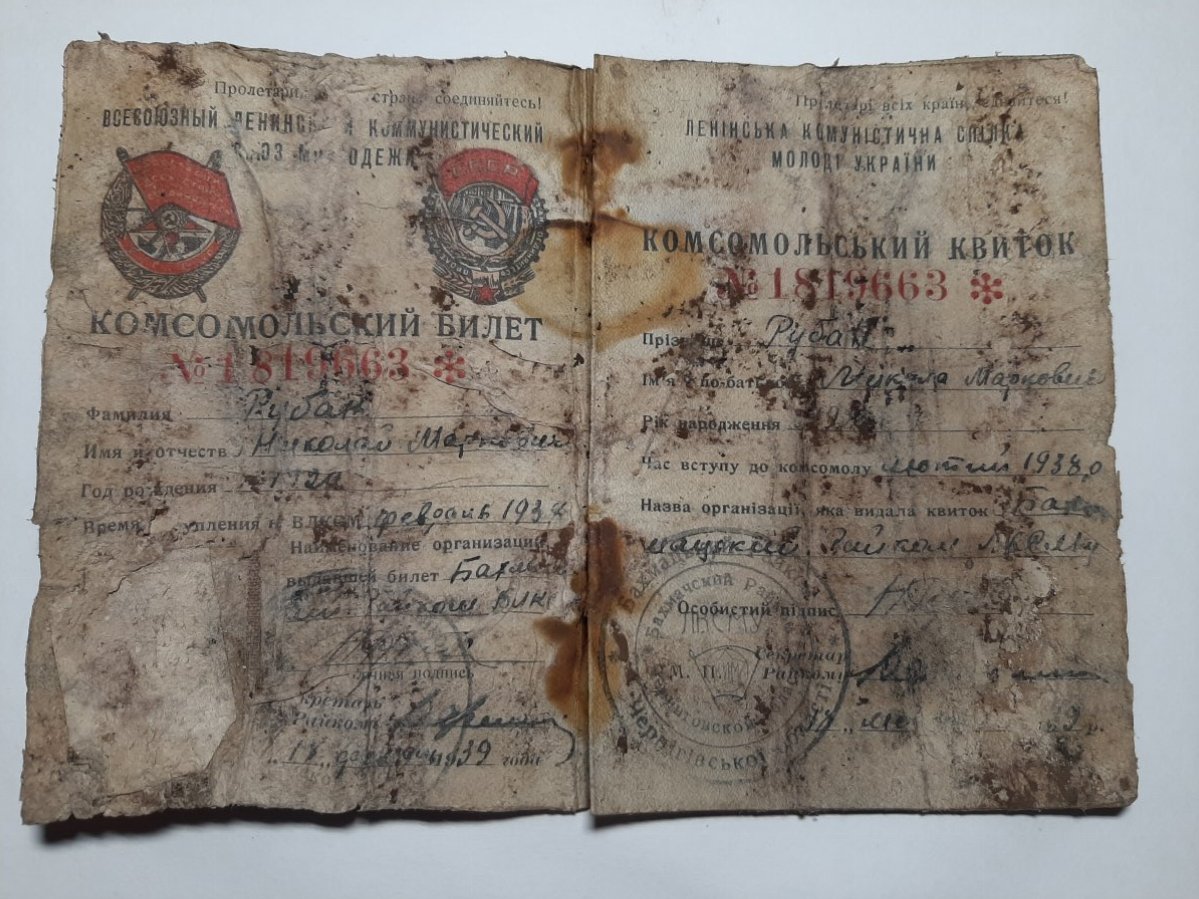 Пролетари стран соединяйтесь!
ВСЕСОЮЗНЫЙ ЛЕНИНСКИЙ КОММУНИСТИЧЕСКИЙ
СОЮЗ МОЛОДЕЖИ
КОМСОМОЛЬСКИЙ БИЛЕТ
№ 1819663 *
Фамилия Рубан
Имя и отчеств Николай Маркович
Год рождения 1920
Время вступления в ВЛКСМ февраль 1938
Наименование организации,
выдавшей билет
райком ВЛКС
личная подпись
Секретарь
Райкома
„17„ 1939 года
Пролетарі всіх країн, єднайтеся!
ЛЕНІНСЬКА КОМУНІСТИЧНА СПІЛКА
МОЛОДІ УКРАЇНИ
КОМСОМОЛЬСЬКИЙ КВИТОК
№ 1819663 *
Прізвище Рубан
Ім'я і по-батькові Микола Маркович
Рік народження
Час вступу до комсомолу лютий 1938 р
Назва організації, яка видала квиток Бахмацький
райком ЛКСМУ
Особистий підпис
Секретар
М. П. Райкому